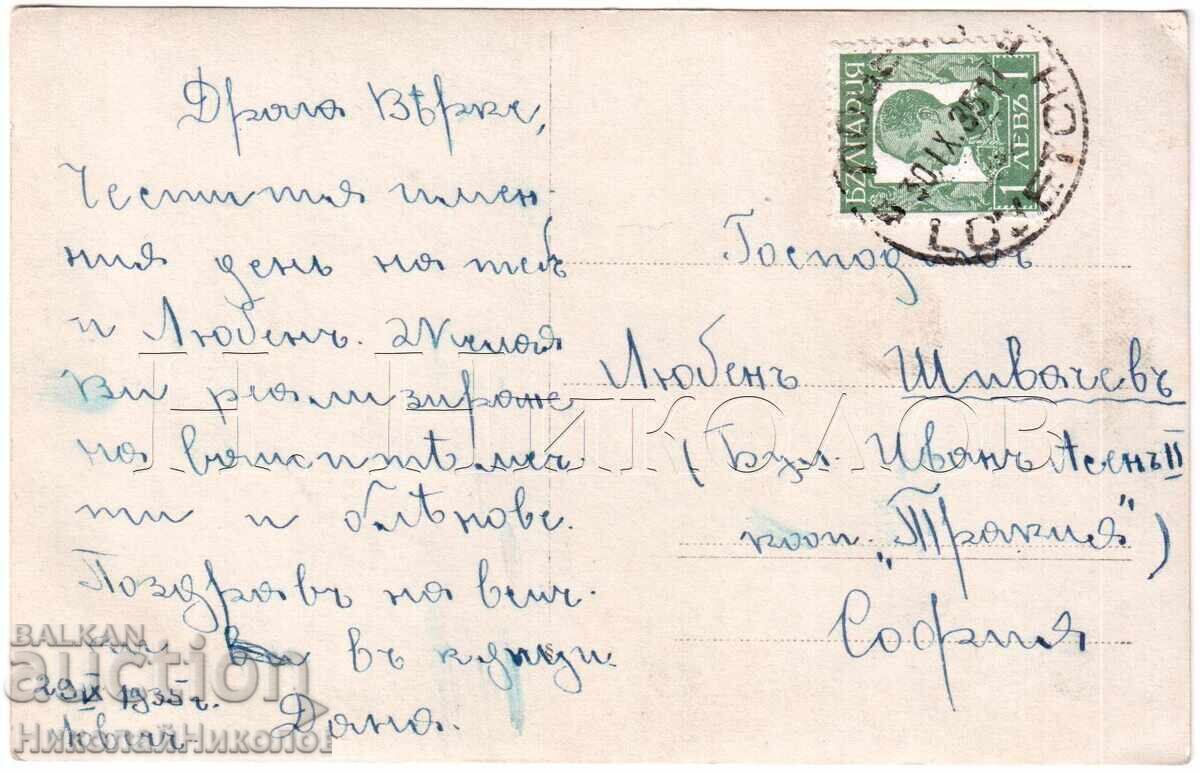 Драга Вѣрке,
Честитя имен-
ния день на тебъ
и Любенъ. Желая
ви реализиране
на вашитѣ меч-
ти и блѣнове.
Поздравъ на всич-
ки въ кѫщи
29 IX 1935 г.
Ловечъ Дана.
БЪЛГАРИЯ
1 ЛЕВЪ 1
30.IX.35
LOVETCH
Господинъ
Любенъ Шивачевъ
(Бул. Иванъ Асенъ II
кооп. „Тракия")
София
Н НИКОЛОВ
BALKAN
auction
НиколайНиколов